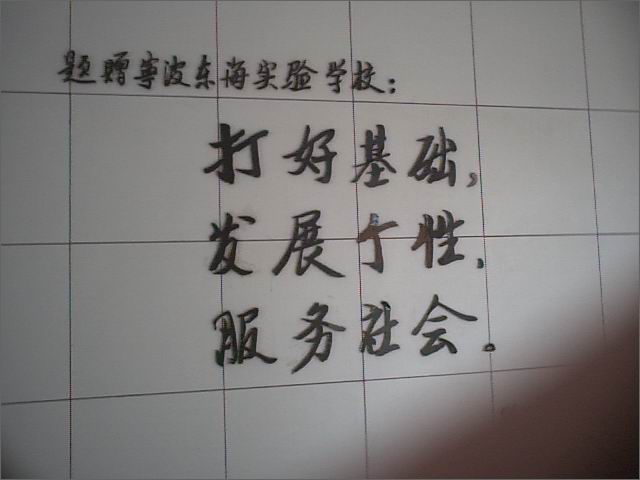 题赠宁波东海实验学校：
打好基础，
发展个性，
服务社会。